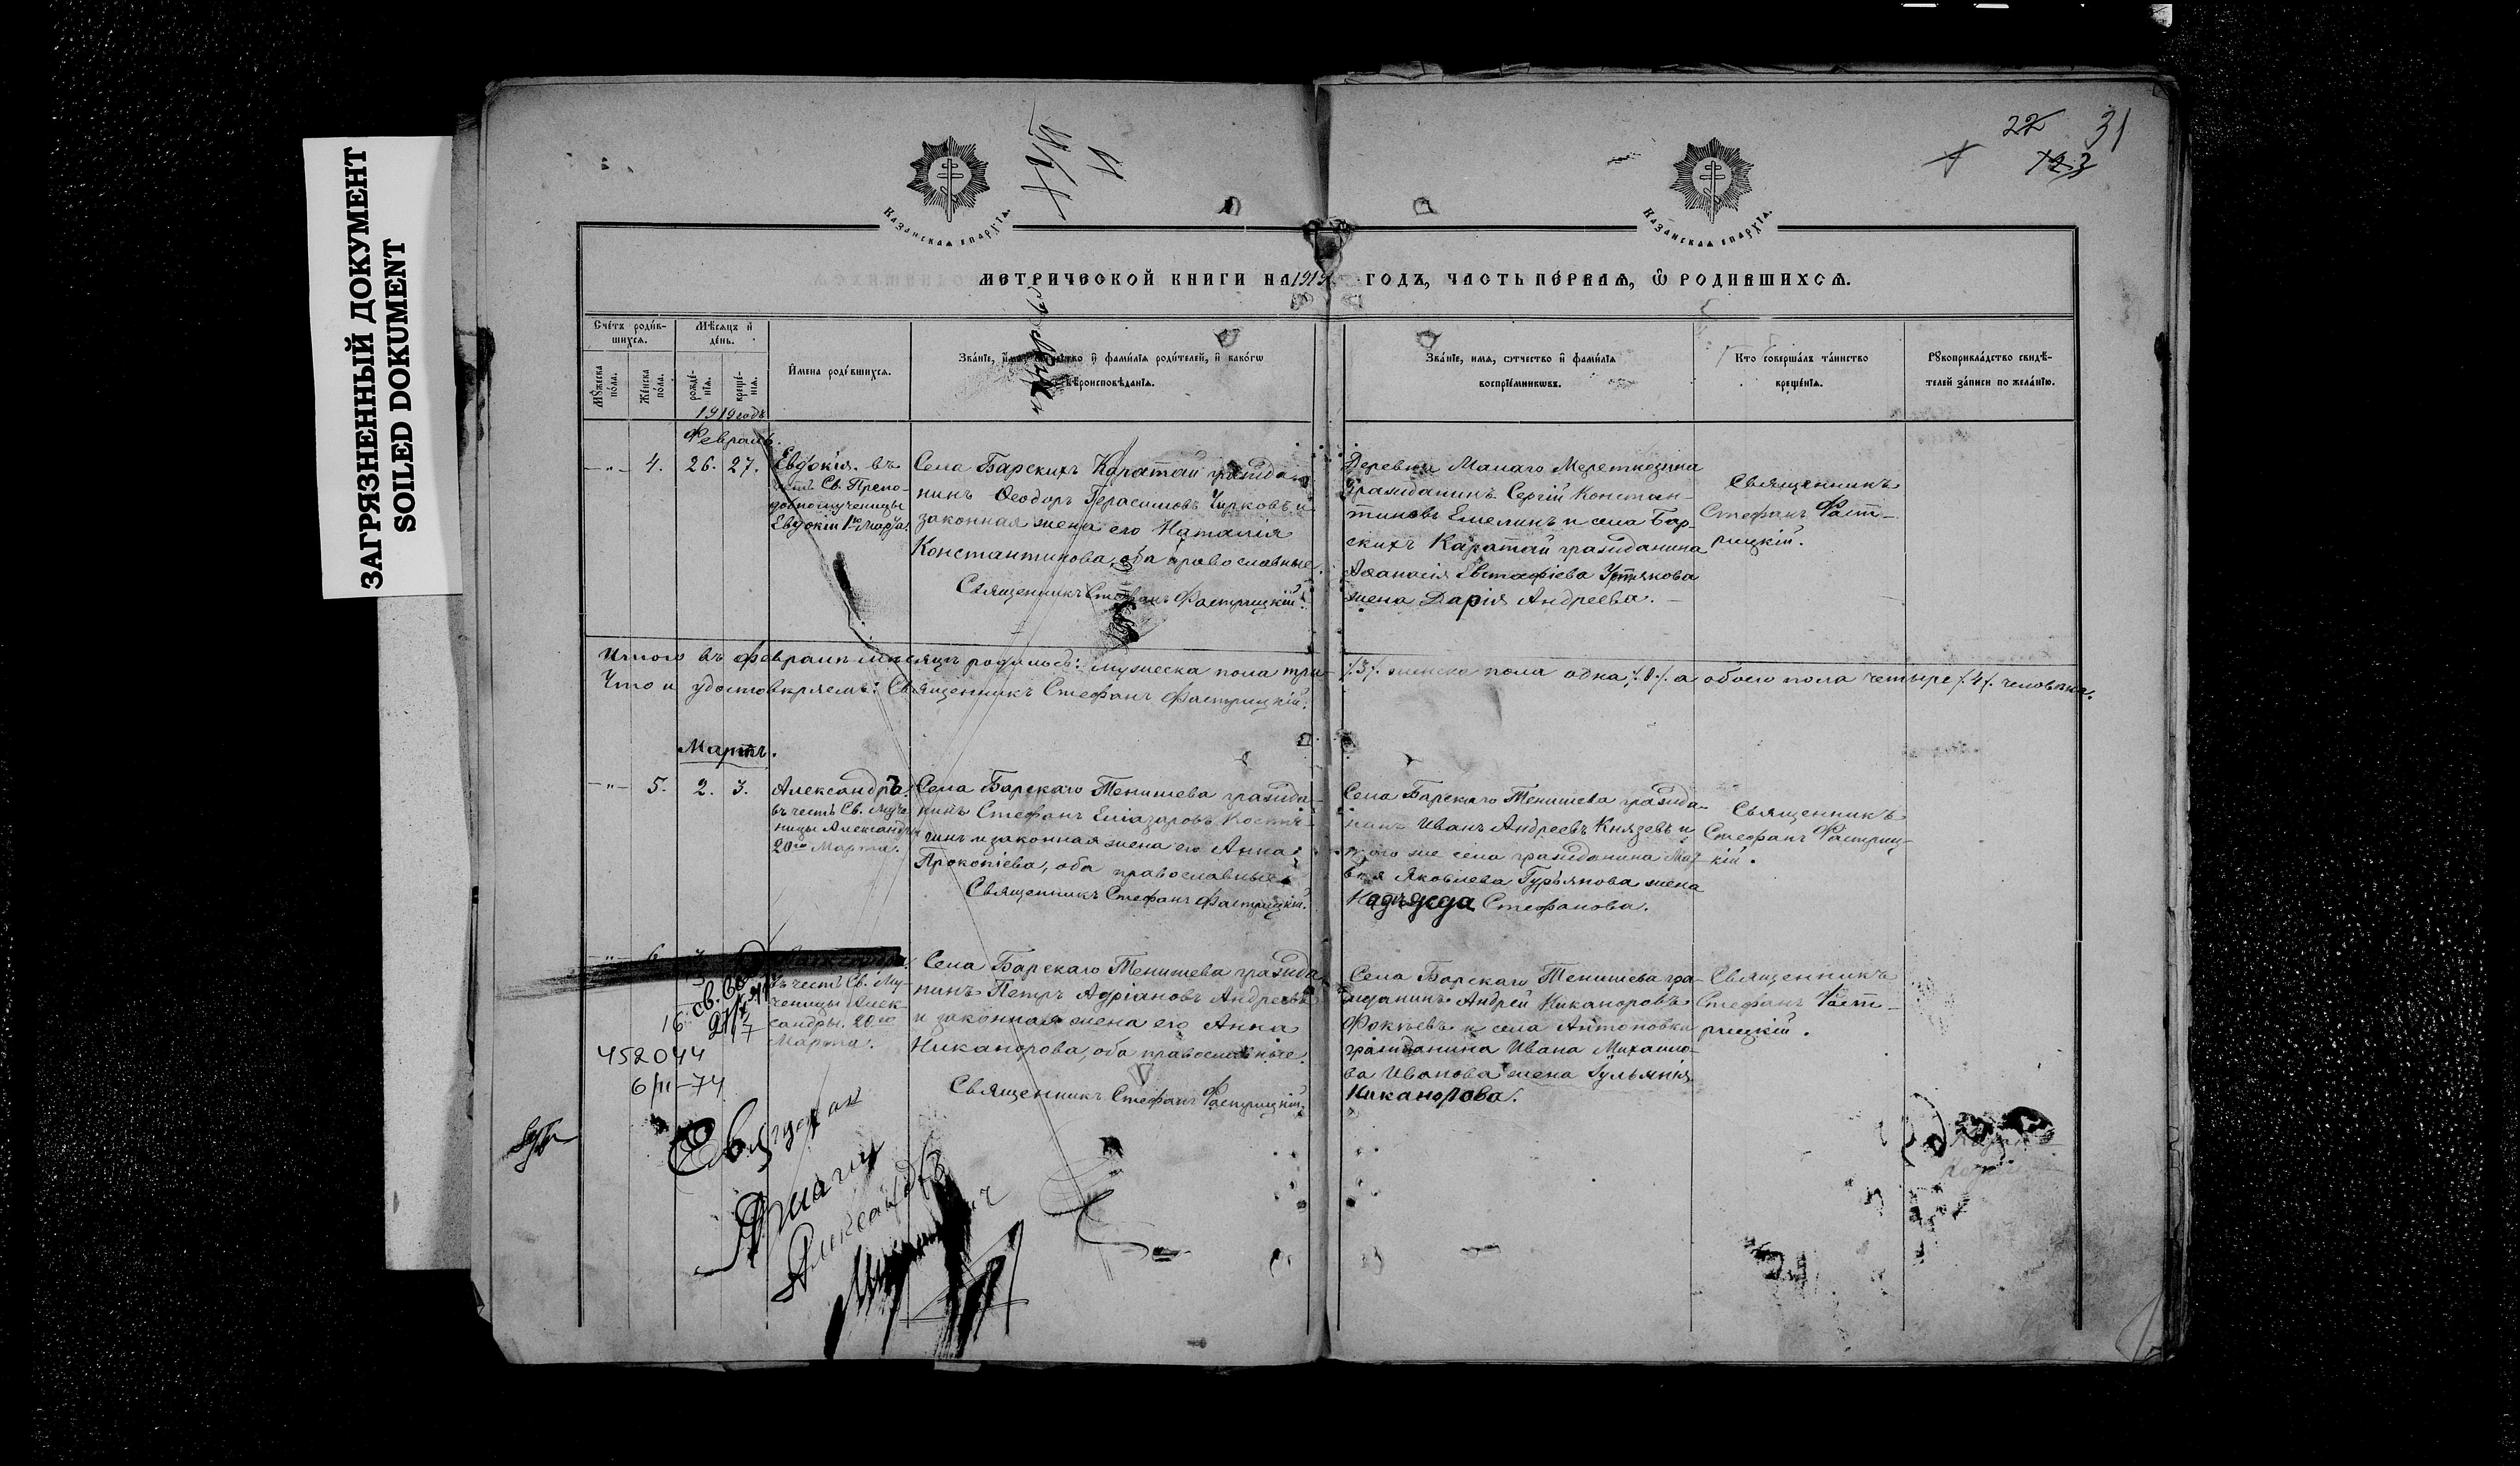 ЗАГРЯЗНЕННЫЙ ДОКУМЕНТ
SOILED DOKUMENT
22 31
Казанская епархїа.
Казанская епархїа.
МЕТРИЧЕСКОЙ КНИГИ НА 1919 ГОДЪ, ЧАСТЬ ПЕ́РВАЯ, Ѽ РОДИВШИХСѦ.
Сче́тъ роди́в-
шихсѧ.
Мѣ́сѧцъ и҆
де́нь.
Мꙋ́жеска
по́ла.
Же́нска
по́ла.
рожде́-
нїѧ.
креще́-
нїѧ.
И҆мена роди́вшихсѧ.
Зва́нїе, и҆́мѧ, ѻ҆́тчество и҆ фами́лїѧ роди́телей, и҆ како́гѡ
вѣроисповѣ́данїѧ.
Зва́нїе, имѧ, ѻтчество и҆ фами́лїѧ
воспрїе́мникѡвъ.
Кто̀ соверша́лъ та́инство
креще́нїѧ.
Рꙋкоприкла́дство свидѣ́-
телей за́писи по жела́нїю.
1919 годъ
Февраль.
4. 26. 27.
Евдокія. въ
честь Св. Препо-
добномученицы
Евдокіи 1го Марта.
Села Барскихъ Каратай гражда-
нинъ Ѳеодоръ Герасимовъ Чирковъ и
законная жена его Наталія
Константинова, оба православные.
Священникъ Стефанъ Фастрицкій.
Деревни Малаго Мереткозина
гражданинъ Сергій Констан-
тиновъ Емелинъ и села Бар-
скихъ Каратай гражданина
Аѳанасія Евстафіева Устякова
жена Дарія Андреева.
Священникъ
Стефанъ Фаст-
рицкій.
Итого въ февралѣ мѣсяцѣ родилось: мужеска пола три /.3/. женска пола одна, а обоего пола четыре /.4/. человѣка.
Что и удостовѣряемъ: Священникъ Стефанъ Фастрицкій.
Мартъ.
5. 2. 3.
Александра.
въ честь Св. Муче-
ницы Александры
20го Марта.
Села Барскаго Тенишева гражда-
нинъ Стефанъ Еліазаровъ Костя-
нинъ и законная жена его Анна
Прокопіева, оба православные.
Священникъ Стефанъ Фастрицкій.
Села Барскаго Тенишева гражда-
нинъ Иванъ Андреевъ Князевъ и
того же села гражданина Мат-
вѣя Яковлева Гурьянова жена
Надежда Стефанова.
Священникъ
Стефанъ Фастриц-
кій.
6.
въ честь Св. Му-
ченицы Алек-
сандры. 20го
Марта.
Села Барскаго Тенишева гражда-
нинъ Петръ Адріановъ Андреевъ
и законная жена его Анна
Никанорова, оба православные.
Священникъ Стефанъ Фастрицкій.
Села Барскаго Тенишева гра-
жданинъ Андрей Никаноровъ
Фокѣевъ и села Антоновки
гражданина Ивана Михаило-
ва Иванова жена Гульянія
Никанорова.
Священникъ
Стефанъ Фаст-
рицкій.
452044
6/III-74